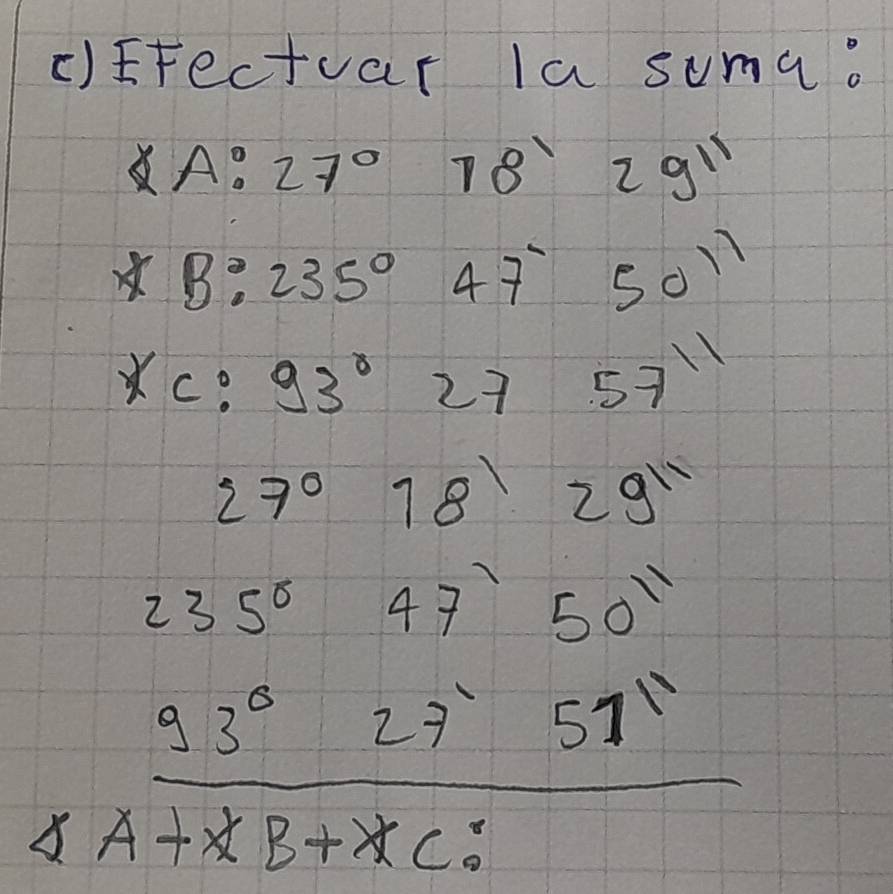 c) Efectuar la suma:
∡A: 27° 18` 29"
∡B: 235° 47` 50"
∡C: 93° 27 57"
27° 18` 29"
235° 47` 50"
93° 27` 51"
∡A+∡B+∡C: